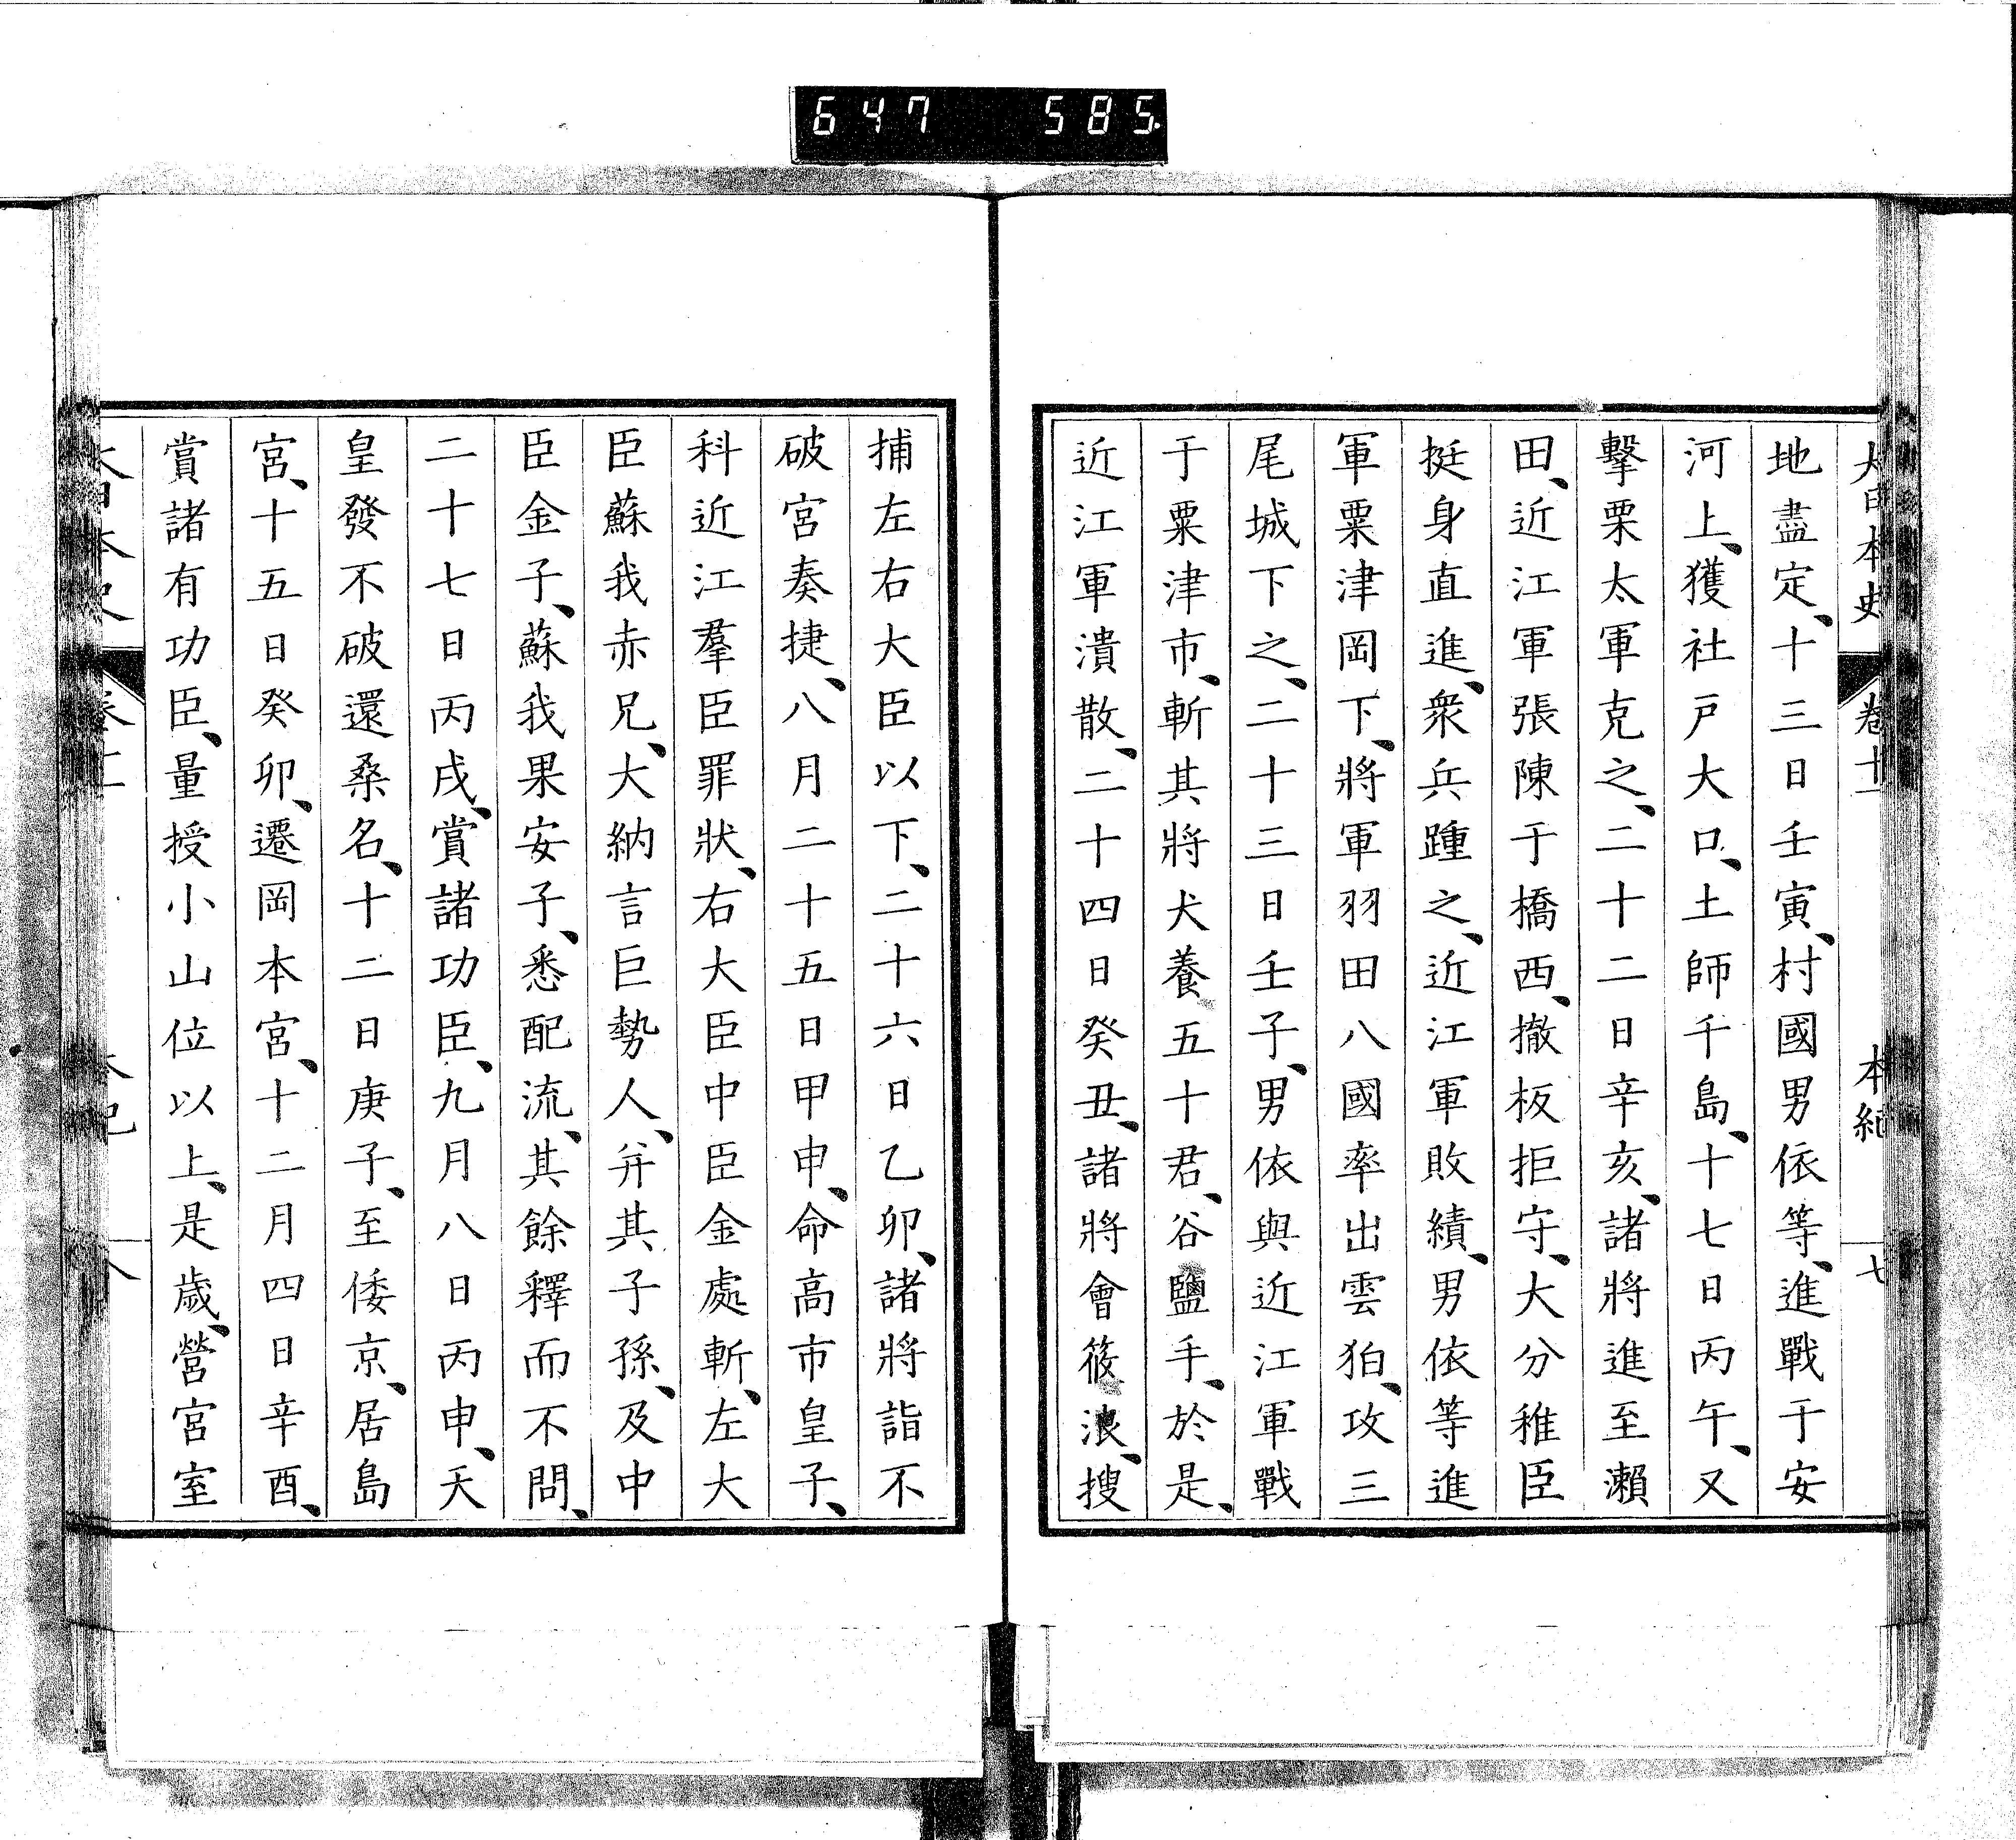 647 585.
大日本史 卷十一 本紀 七
地盡定、十三日壬寅、村國男依等、進戰于安
河上、獲社戸大口、土師千島、十七日丙午、又
擊栗太軍克之、二十二日辛亥、諸將進至瀨
田、近江軍張陳于橋西、撤板拒守、大分稚臣
挺身直進、衆兵踵之、近江軍敗績、男依等進
軍粟津岡下、將軍羽田八國率出雲狛、攻三
尾城下之、二十三日壬子、男依與近江軍戰
于粟津市、斬其將犬養五十君、谷鹽手、於是、
近江軍潰散、二十四日癸丑、諸將會筱浪、搜
捕左右大臣以下、二十六日乙卯、諸將詣不
破宮奏捷、八月二十五日甲申、命高市皇子、
科近江羣臣罪狀、右大臣中臣金處斬、左大
臣蘇我赤兄、大納言巨勢人、幷其子孫、及中
臣金子、蘇我果安子、悉配流、其餘釋而不問、
二十七日丙戌、賞諸功臣、九月八日丙申、天
皇發不破還桑名、十二日庚子、至倭京、居島
宮、十五日癸卯、遷岡本宮、十二月四日辛酉、
賞諸有功臣、量授小山位以上、是歲、營宮室